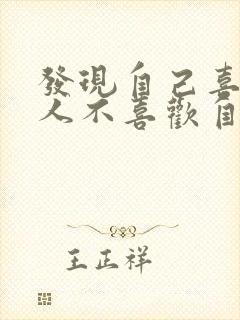 發現自己喜
人不喜歡自
王正祥